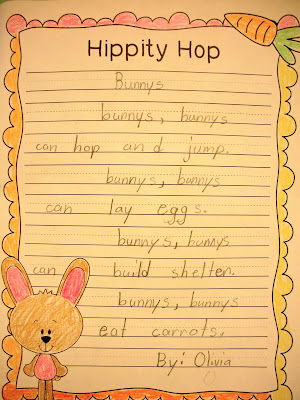 Hippity Hop
Bunnys
bunnys, bunnys
can hop and jump.
bunnys, bunnys
can lay eggs.
bunnys, bunnys
can build shelter.
bunnys, bunnys
eat carrots.
By: Olivia